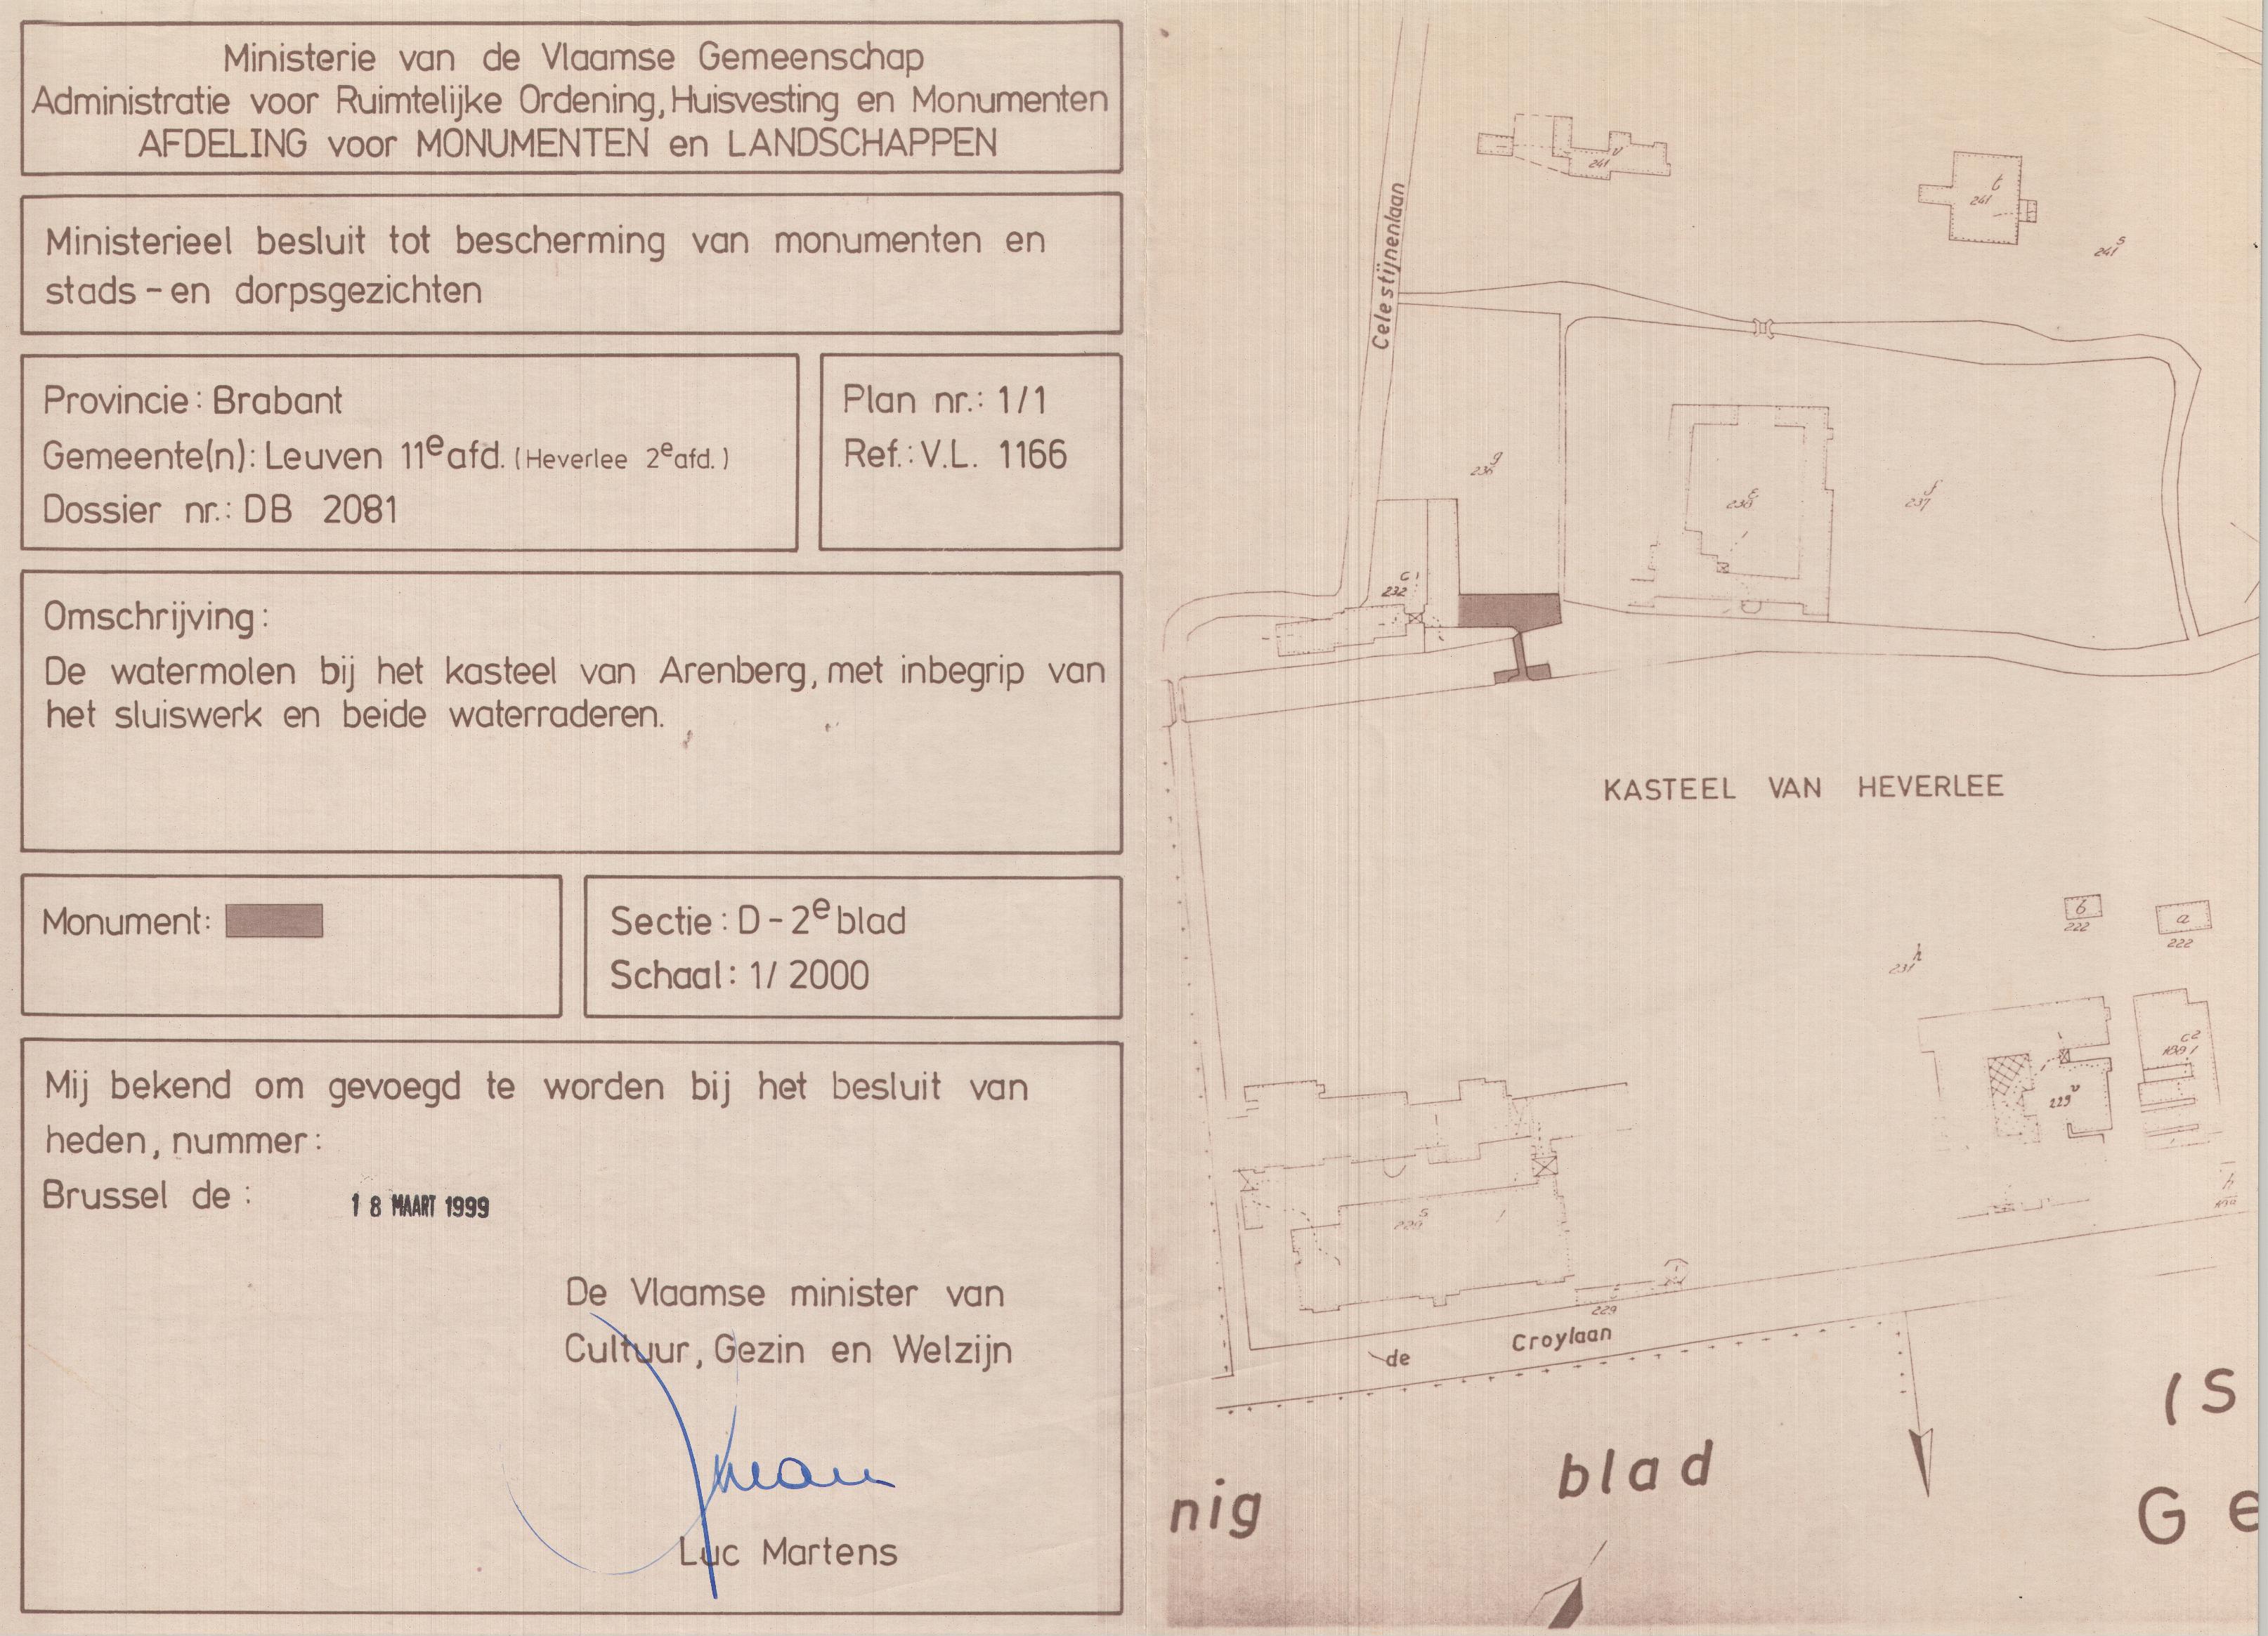 Ministerie van de Vlaamse Gemeenschap
Administratie voor Ruimtelijke Ordening, Huisvesting en Monumenten
AFDELING voor MONUMENTEN en LANDSCHAPPEN
Ministerieel besluit tot bescherming van monumenten en
stads-en dorpsgezichten
Provincie: Brabant
Gemeente(n): Leuven 11e afd. (Heverlee 2e afd.)
Dossier nr.: DB 2081
Plan nr.: 1/1
Ref.: V.L. 1166
Omschrijving:
De watermolen bij het kasteel van Arenberg, met inbegrip van
het sluiswerk en beide waterraderen.
Monument:
Sectie: D-2e blad
Schaal: 1/2000
Mij bekend om gevoegd te worden bij het besluit van
heden, nummer:
Brussel de:
18 MAART 1999
De Vlaamse minister van
Cultuur, Gezin en Welzijn
Luc Martens
Celestijnenlaan
241 v
241 t
241 s
236 g
238 e
237 f
232 c
KASTEEL VAN HEVERLEE
b
222
a
222
231 h
229 v
229
de Croylaan
blad
nig
IS
Ge